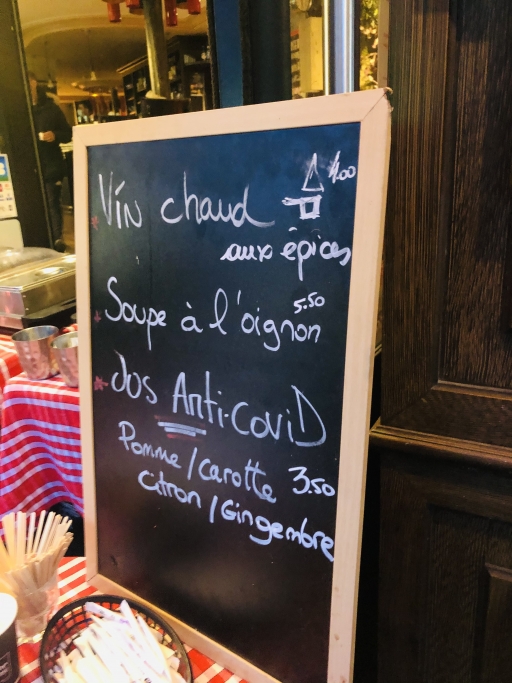 Vin chaud 4.00
aux épices
Soupe à l'oignon 5.50
Jus Anti-coviD
Pomme/carotte 3.50
citron/Gingembre